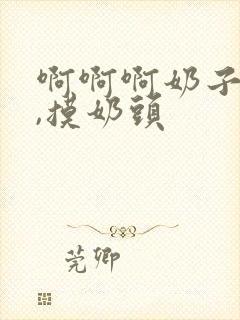 啊啊啊奶子
,摸奶頭
莞卿